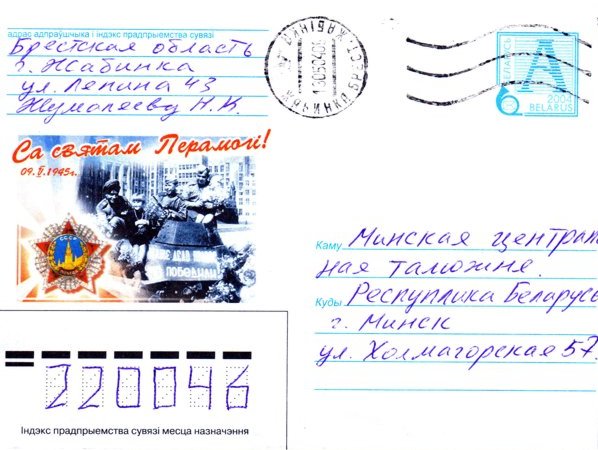 адрас адпраўшчыка і індэкс прадпрыемства сувязі
Брестская область
г. Жабинка
ул. Ленина 43
Жумолееву Н.К.
БЕЛАРУСЬ
А
2004
BELARUS
Са святам Перамогі!
09.V.1945г.
СССР
Каму Минская централь
ная таможня.
Куды Республика Беларусь
г. Минск
ул. Холмагорская 57.
220046
Індэкс прадпрыемства сувязі месца назначэння